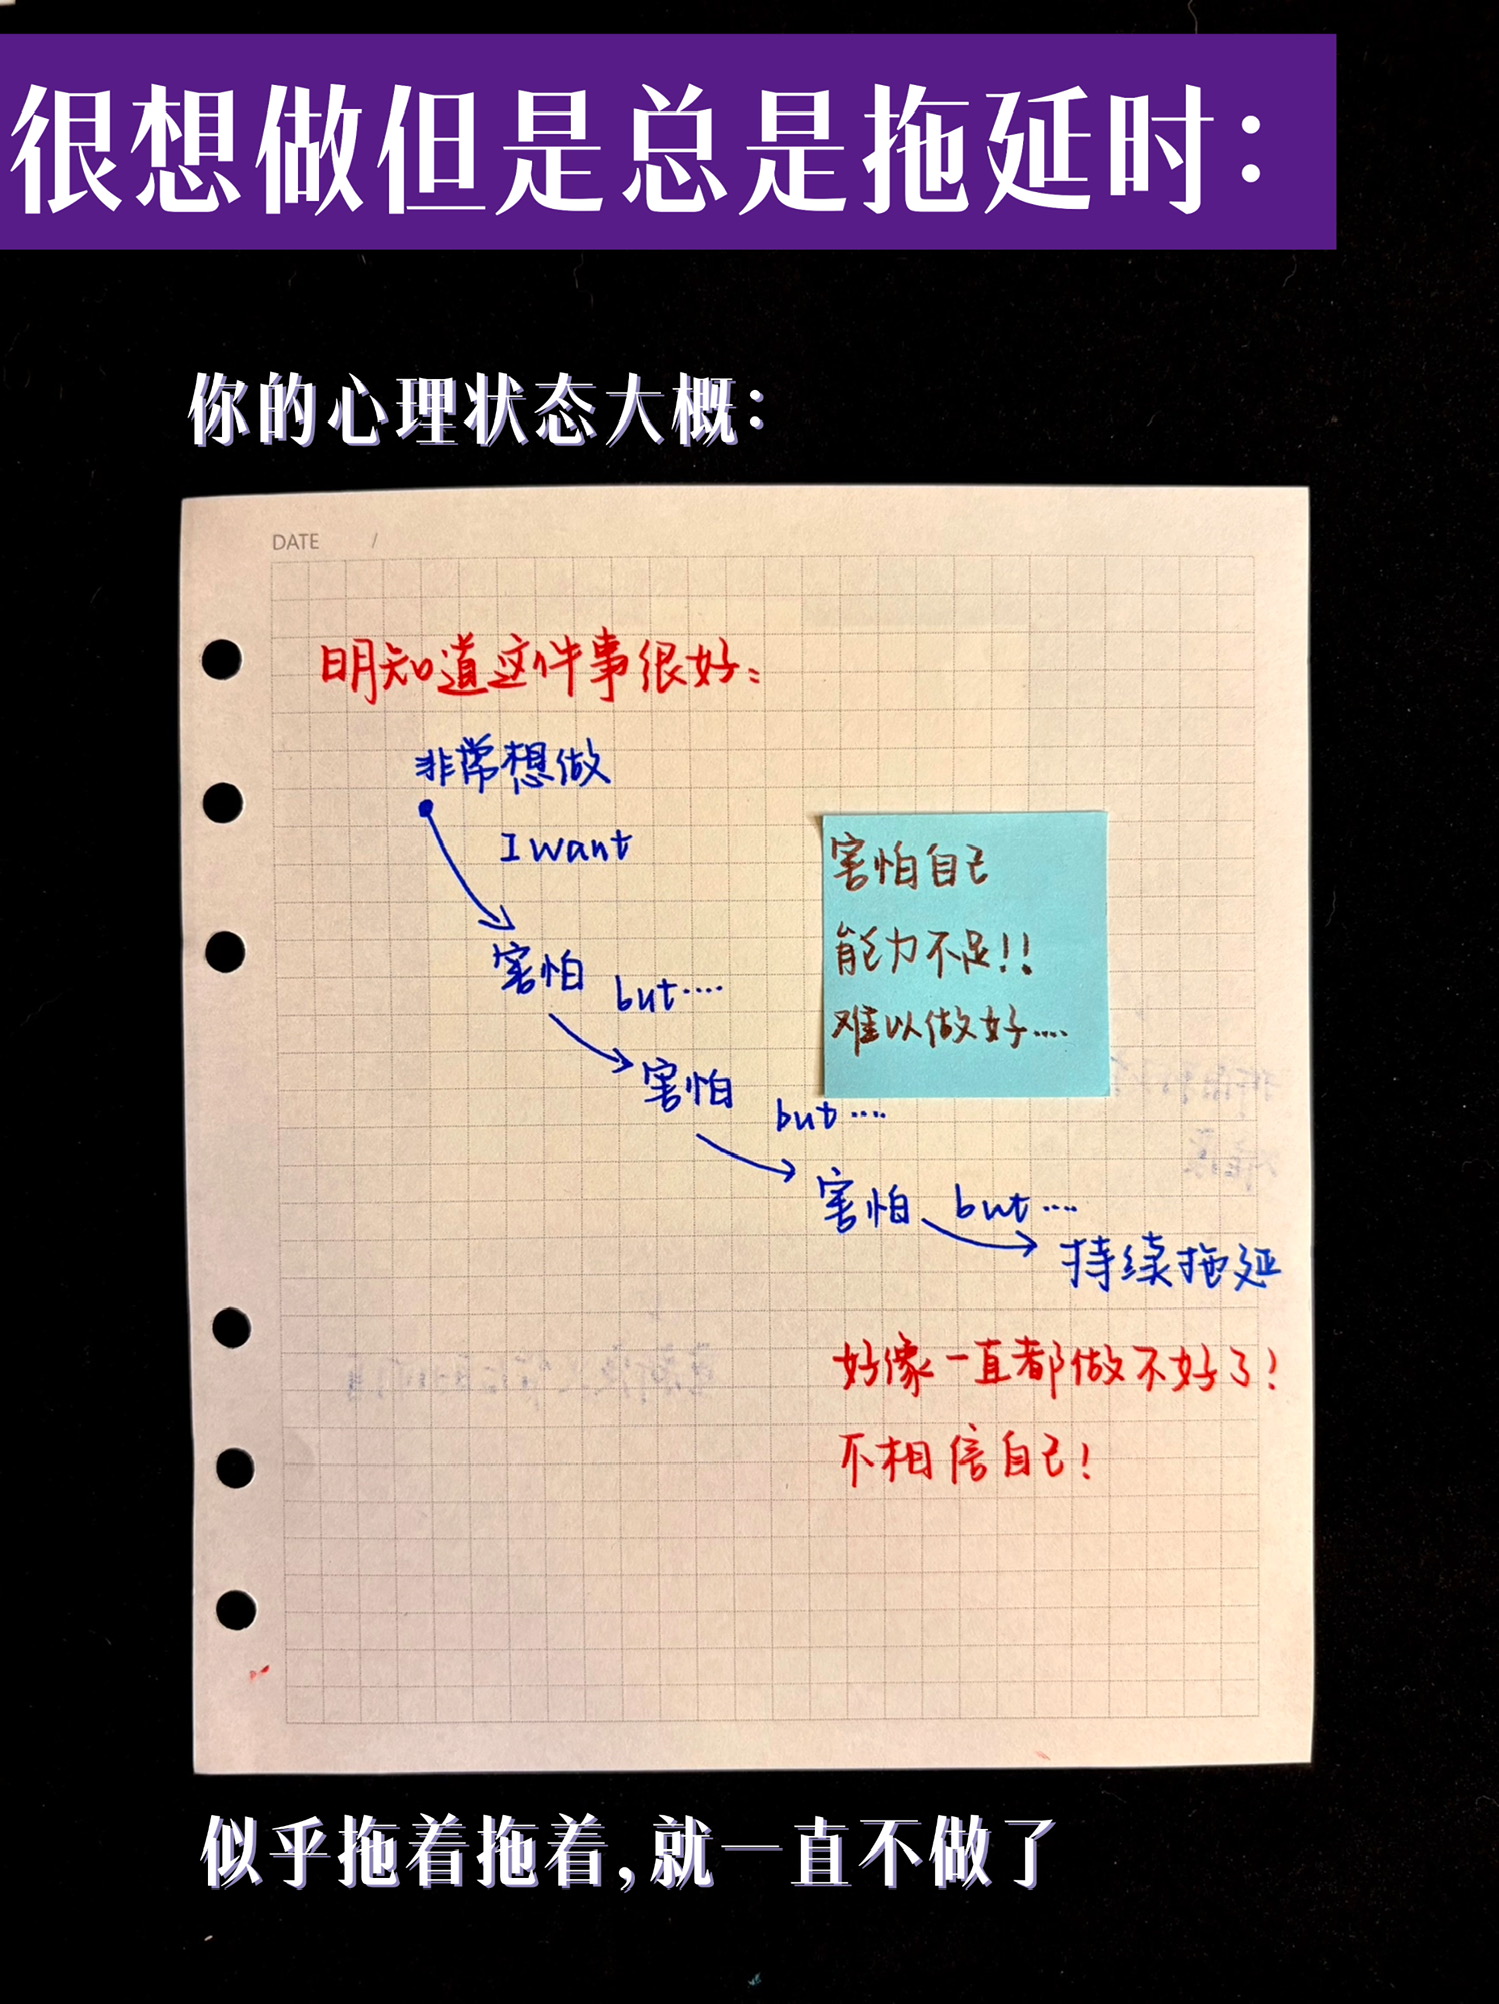 很想做但是总是拖延时：
你的心理状态大概：
DATE /
明知道这件事很好：
非常想做
I want
害怕 but····
害怕 but····
害怕 but····
持续拖延
害怕自己
能力不足!!
难以做好····
好像一直都做不好了!
不相信自己!
似乎拖着拖着,就一直不做了